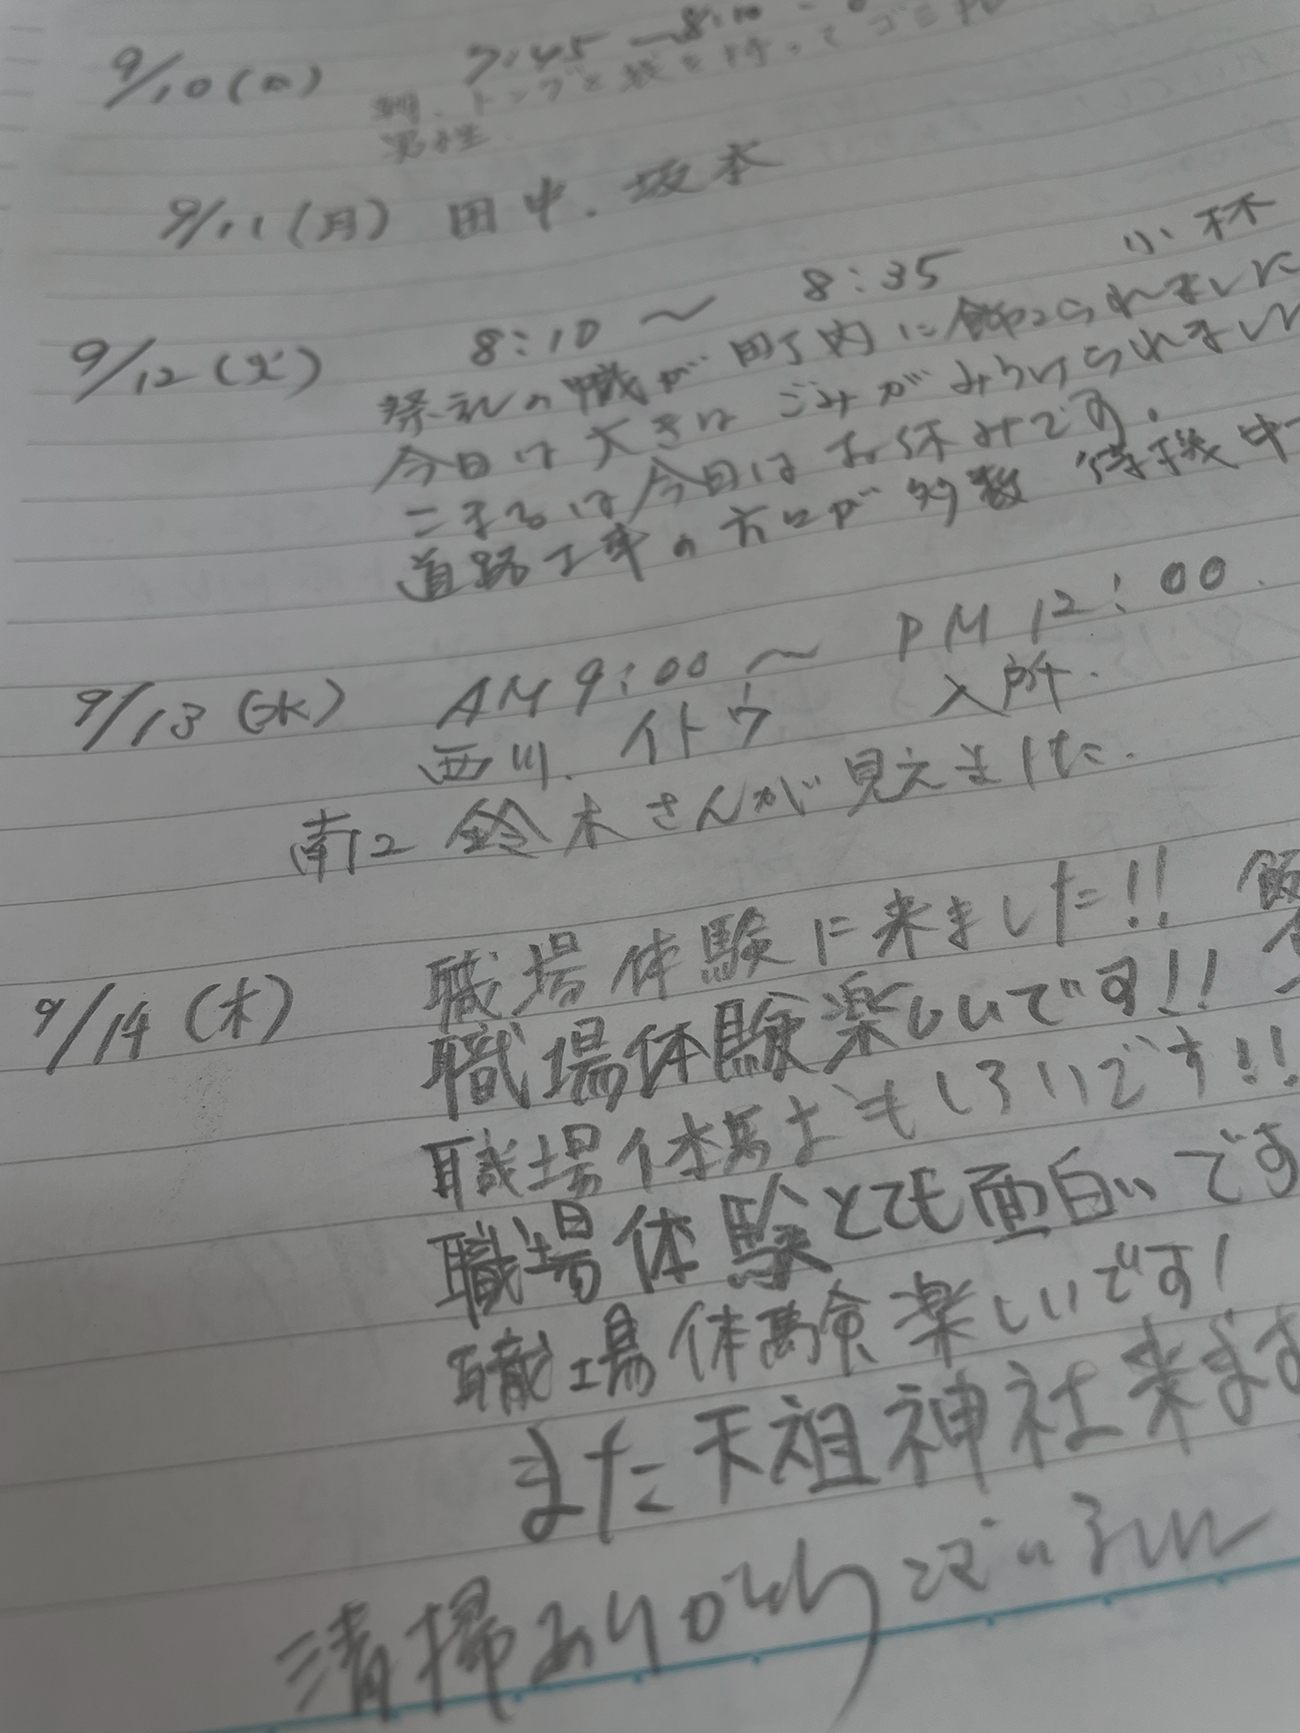 9/10(日) 7:45 〜8:10
朝、トングと袋を持ってゴミ
男性
9/11(月) 田中、坂本
9/12(火) 8:10 〜 8:35 小林
祭礼の幟が町内に飾られました
今日は大きな ごみがみうけられまし
こまるは今日はお休みです。
道路工事の方々が多数 待機中
9/13(水) AM9:00〜 PM 12:00
西川、イトウ 入所.
南12 鈴木さんが見えました.
9/14(木) 職場体験に来ました!! 飯
職場体験楽しいです!!
職場体験おもしろいです!!
職場体験とても面白いです
職場体験楽しいです!
また天祖神社来ます
清掃ありがとうございました